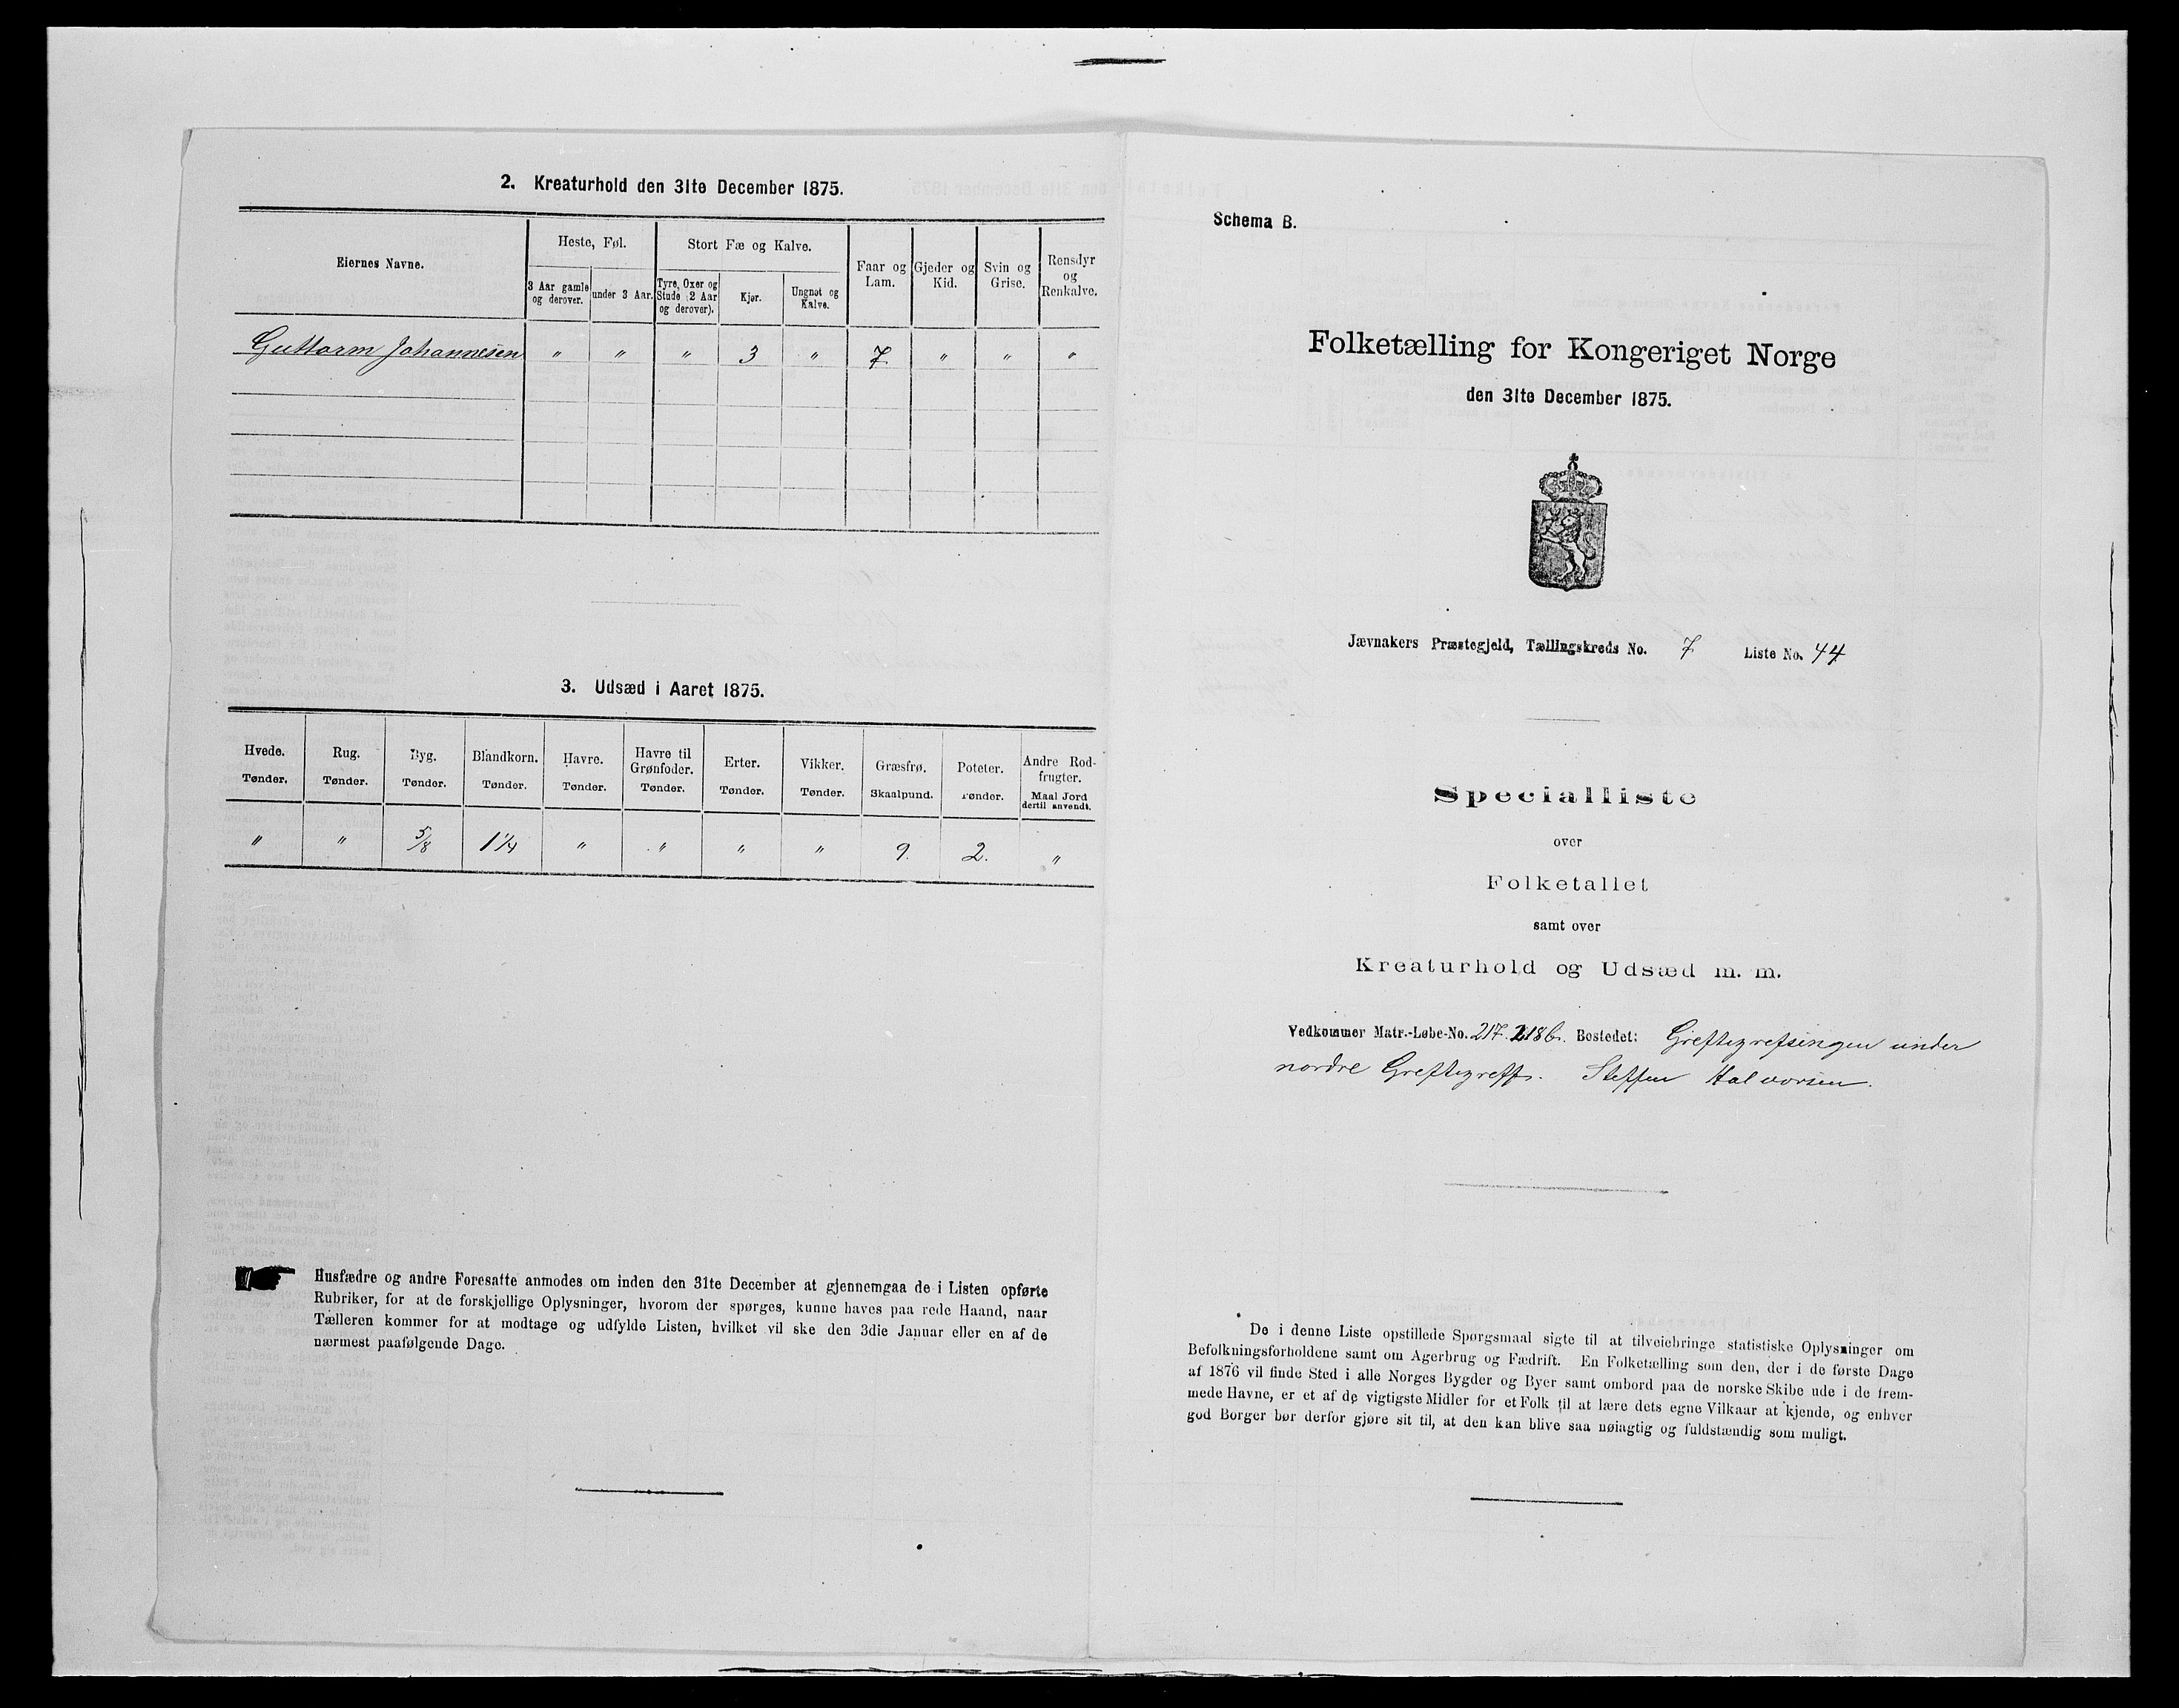 2. Kreaturhold den 31te December 1875.
Eiernes Navne.
Heste, Føl.
Stort Fæ og Kalve.
3 Aar gamle og derover.
under 3 Aar.
Tyre, Oxer og Stude (2 Aar og derover).
Kjør.
Ungnøt og Kalve.
Faar og Lam.
Gjeder og Kid.
Svin og Grise.
Rensdyr og Renkalve.
Guttorm Johannesen " " " 3 " 7 " " "
3. Udsæd i Aaret 1875.
Hvede. Rug. Byg. Blandkorn. Havre. Havre til Grønfoder. Erter. Vikker. Græsfrø. Poteter. Andre Rodfrugter.
Tønder. Tønder. Tønder. Tønder. Tønder. Tønder. Tønder. Tønder. Skaalpund. Tønder. Maal Jord dertil anvendt.
" " 5/8 1 1/4 " " " " 9. 2. "
Husfædre og andre Foresatte anmodes om inden den 31te December at gjennemgaa de i Listen opførte
Rubriker, for at de forskjellige Oplysninger, hvorom der spørges, kunne haves paa rede Haand, naar
Tælleren kommer for at modtage og udfylde Listen, hvilket vil ske den 3die Januar eller en af de
nærmest paafølgende Dage.
Schema B.
Folketælling for Kongeriget Norge
den 31te December 1875.
Jævnakers Præstegjeld, Tællingskreds No. 7 Liste No. 44
Specialliste
over
Folketallet
samt over
Kreaturhold og Udsæd m. m.
Vedkommer Matr.-Løbe-No. 217. 218b. Bostedet: Greftegrefsingen under
nordre Greftegreff. Steffen Halvorsen.
De i denne Liste opstillede Spørgsmaal sigte til at tilveiebringe statistiske Oplysninger om
Befolkningsforholdene samt om Agerbrug og Fædrift. En Folketælling som den, der i de første Dage
af 1876 vil finde Sted i alle Norges Bygder og Byer samt ombord paa de norske Skibe ude i de frem-
mede Havne, er et af de vigtigste Midler for et Folk til at lære dets egne Vilkaar at kjende, og enhver
god Borger bør derfor gjøre sit til, at den kan blive saa nøiagtig og fuldstændig som muligt.